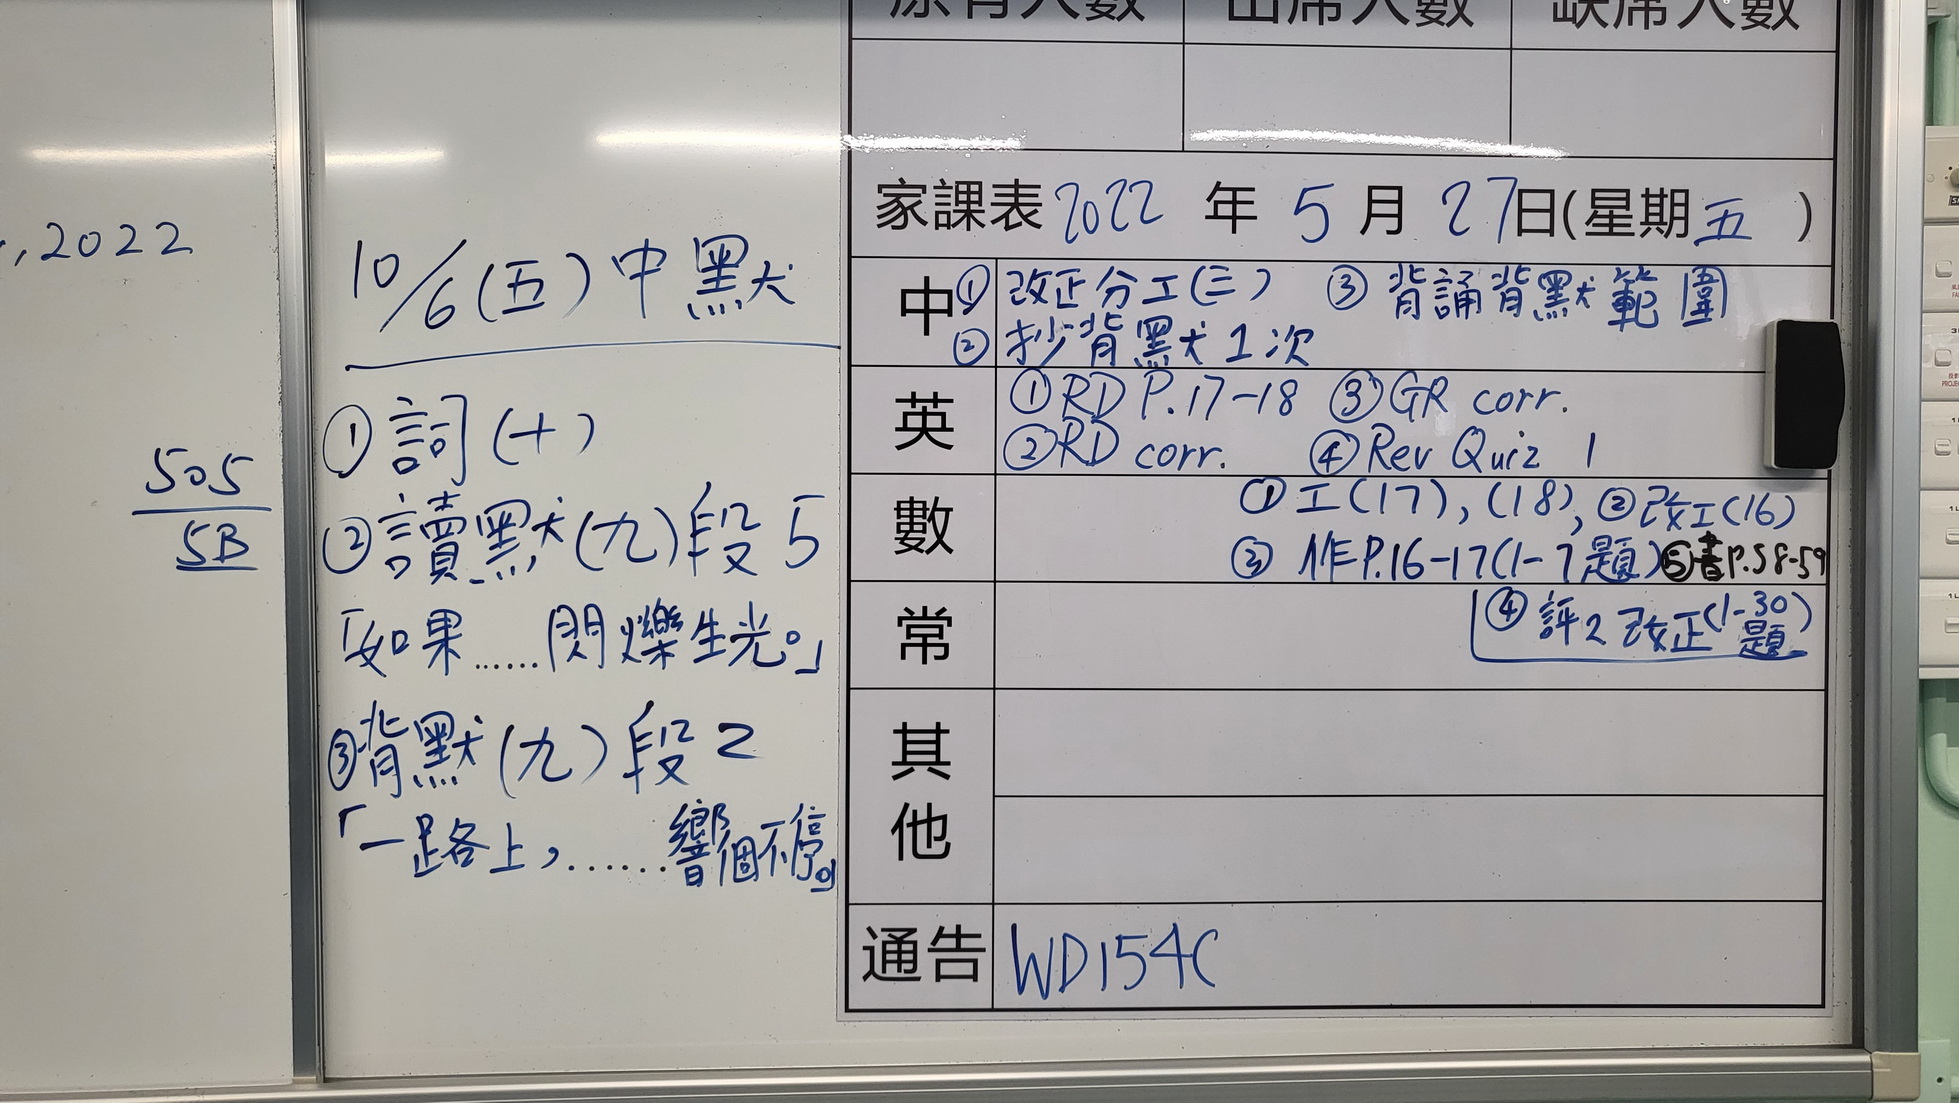 原有人數 出席人數 缺席人數
, 2022
505
5B
10/6(五)中默
①詞(十)
②讀默(九)段5
「如果……閃爍生光。」
③背默(九)段2
「一路上，……響個不停。」
家課表2022年5月27日(星期五)
中 ①改正分工(三) ③背誦背默範圍
②抄背默1次
英 ①RD P.17-18 ③GR corr.
②RD corr. ④Rev Quiz 1
數 ①工(17), (18), ②改工(16)
③作P.16-17(1-7題) ⑤書P.58-59
常 ④評2改正(1-30題)
其他
通告 WD154C